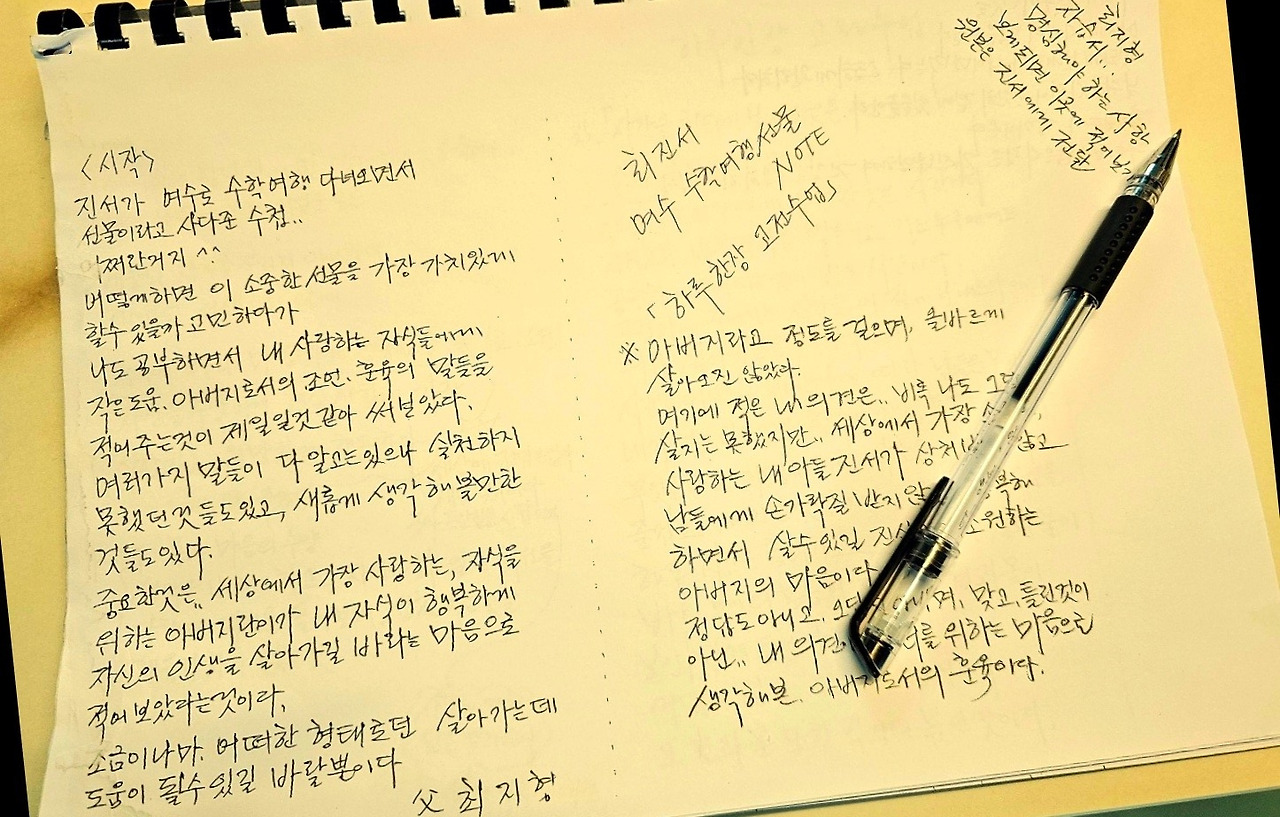 <시작>
진서가 여수로 수학여행 다녀오면서
선물이라고 사다준 수첩..
어쩌란거지 ^^
어떻게하면 이 소중한 선물을 가장 가치있게
할수 있을까 고민하다가
나도 공부하면서 내 사랑하는 자식들에게
작은도움. 아버지로서의 조언. 훈육의 말들을
적어주는것이 제일일것같아 써보았다.
여러가지 말들이 다 알고는있으나 실천하지
못했던것들도있고, 새롭게 생각해볼만한
것들도있다.
중요한것은.. 세상에서 가장 사랑하는, 자식을
위하는 아버지란이가 내 자식이 행복하게
자신의 인생을 살아가길 바라는 마음으로
적어보았다라는것이다.
소금이나마. 어떠한 형태로던 살아가는데
도움이 될수있길 바랄뿐이다
父 최지형
최진서
여수 수학여행선물
NOTE
「하루한장 고전수업」
※ 아버지라고 정도를 걸으며, 올바르게
살아오진 않았다.
여기에 적은 내 의견은.. 비록 나도
살지는 못했지만.. 세상에서 가장
사랑하는 내아들 진서가 않고
남들에게 손가락질 받지
하면서 살수있길 소원하는
아버지의 마음이다
정답도아니고. 맞고, 틀린것이
아닌.. 내 의견 위하는 마음으로
생각해본. 아버지로서의 훈육이다.
최지형
자습서..
명심해야 하는 사항
보게되면 이곳에 적어놓기
원본은 진서에게 전달